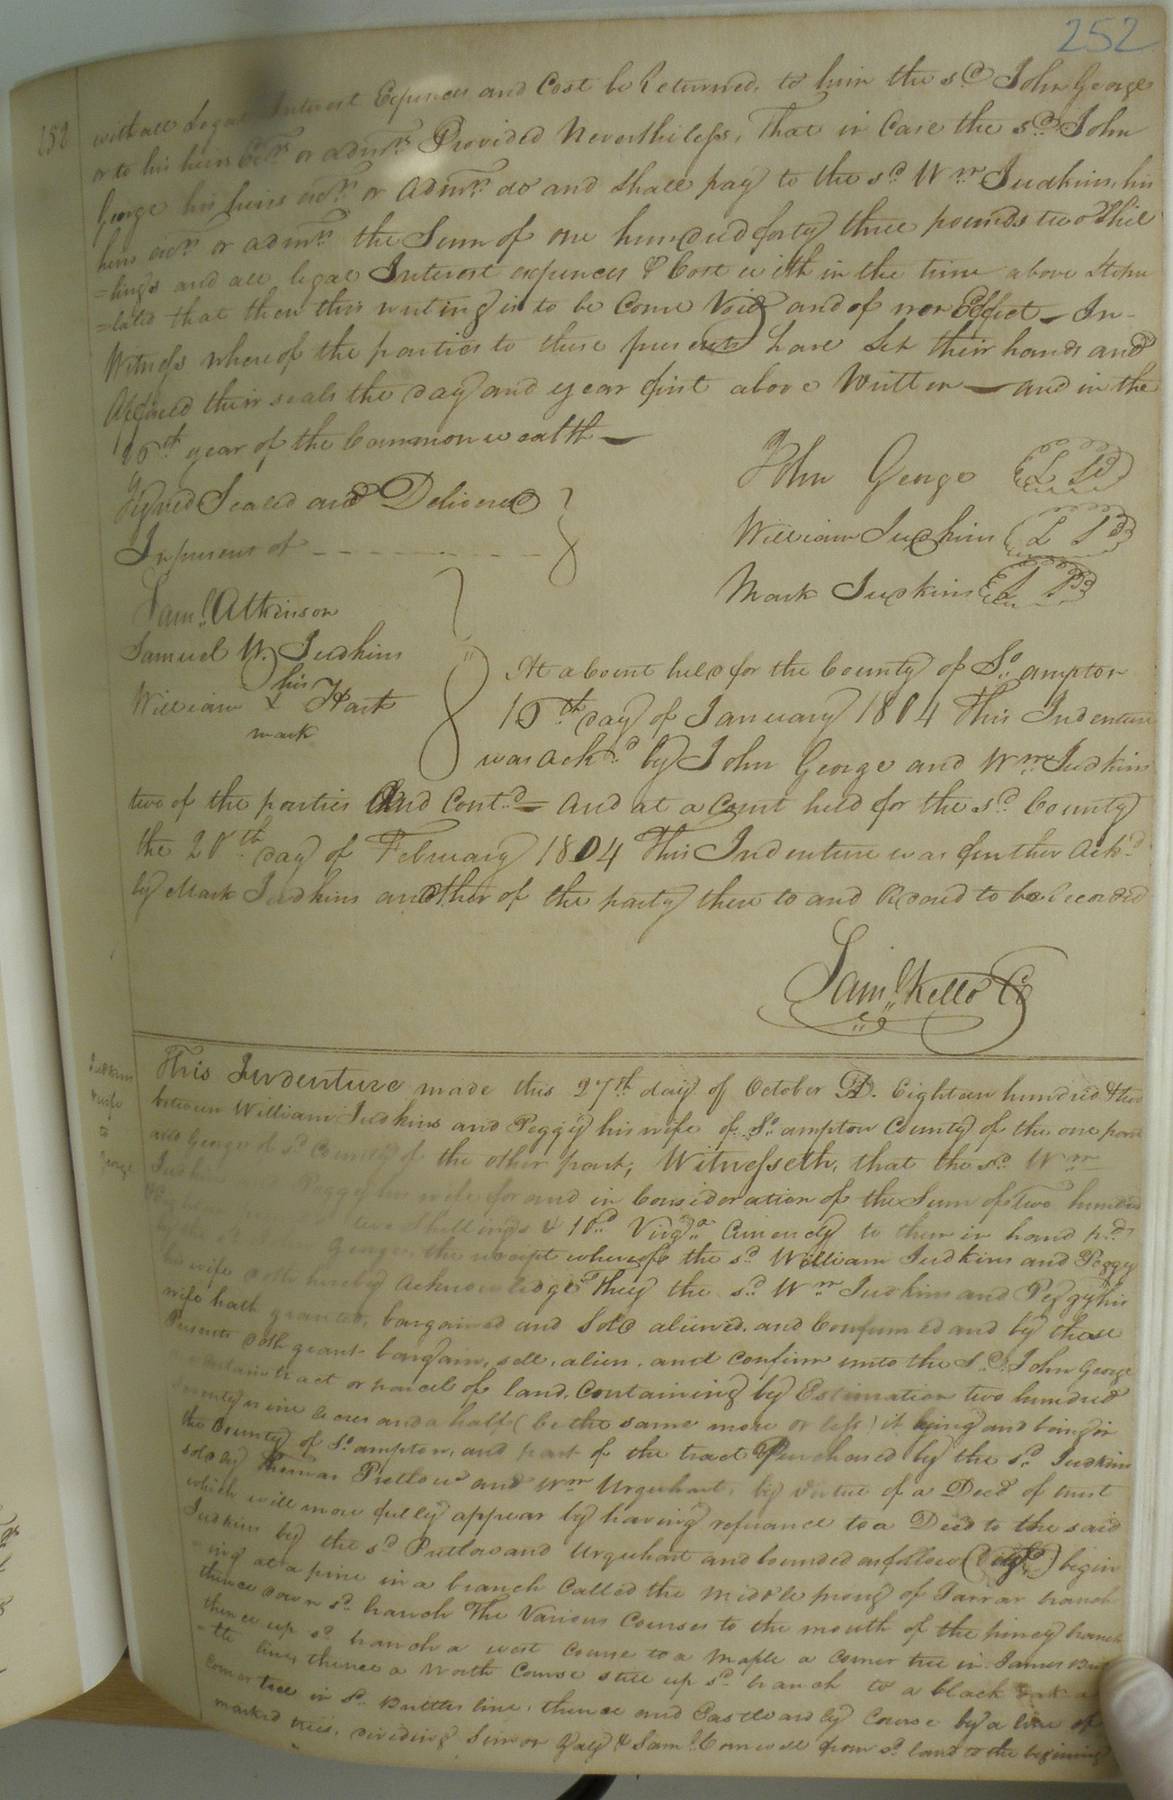 252
252
with all Legal Interest Expences and Cost be Returned, to him the sd. John George
or to his heirs Exrs. or admrs. Provided Nevertheless, That in Case the sd. John
George his heirs exrs. or admrs. do and shall pay to the sd. Wm. Judkins, his
heirs exrs. or admrs. the Sum of one hundred forty three pounds two Shil
=lings and all legal Interest expences & Cost with in the time above Stipu
=lated that then this writing is to be Come Void and of non Effect - In
Witness whereof the parties to these presents have Set their hands and
Affixed their seals the day and year first above Written - and in the
year of the Commonwealth -
Signed Sealed and Delivered
In presens of
John George L Sd
William Judkins L Sd
Mark Judkins L Sd
Saml. Atkinson
Samuel W. Judkins
his
William x Hart
mark
At a Court held for the County of So. ampton
16th. day of January 1804 This Indenture
was Ackd. by John George and Wm. Judkins
two of the parties And Contd. = and at a Court held for the sd. County
the 20th. day of February 1804 This Indenture was further Ackd.
by Mark Judkins another of the party there to and Ordd to be Recorded
Saml. Kello Cc
Judkins
wife
to
George
This Indenture made this 27th. day of October AD. Eighteen hundred & two
between William Judkins and Peggy his wife of So. ampton County of the one part
and George of sd. County of the other part; Witnesseth, that the sd. Wm.
Judkins Peggy his wife for and in Consideration of the Sum of Two hundred
two Shillings & 10d. Virga. Currency to them in hand pd.
George, the receipt whereof the sd. William Judkins and Peggy
his wife doth hereby Acknowledge They the sd. Wm. Judkins and Peggy his
wife hath granted, bargained and Sold aliened, and Confirmed and by these
Presents doth grant bargain, sell, alien, and Confirm unto the sd. John George
a certain tract or parcel of land, Containing by Estimation two hundred
seventy nine acres and a half (be the same more or less) it lying and being in
the County of So. ampton, and part of the tract Purchased by the sd. Judkins
sold by Thomas Pretlow and Wm. Urquhart, by virtue of a Deed of trust
which will more fully appear by having referance to a Deed to the said
Judkins by the sd. Pretlow and Urquhart and bounded as follow (Viz) begin
=ing at a pine in a branch Called the middle prong of Tarrar branch
thence down sd. branch The Various Courses to the mouth of the piney branch
thence up sd. branch a west Course to a Maple a Corner tree in James But
=tts line, thence a North Course still up sd. branch to a black oak a
Corner tree in sd. Buttes line, thence and Eastwardly Course by a line of
marked trees, dividing Simon Galy & Saml. Cornwell from sd. land to the begining